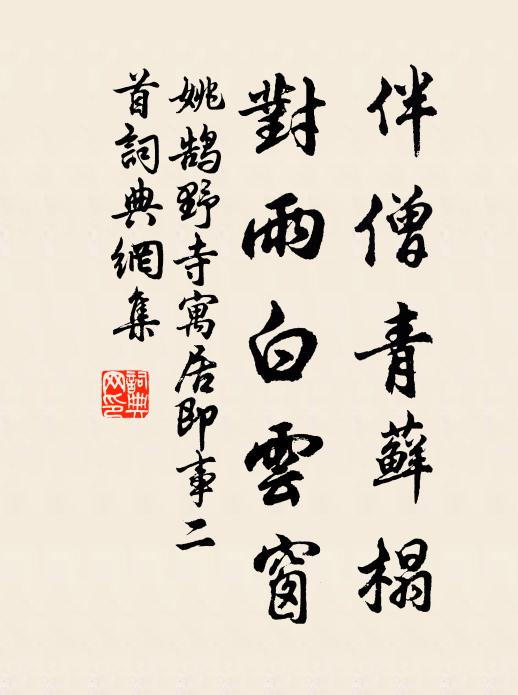 伴僧青蘚榻
對雨白雲窗
姚鵠野寺寓居即事二
首詞典網集
詞典
网印